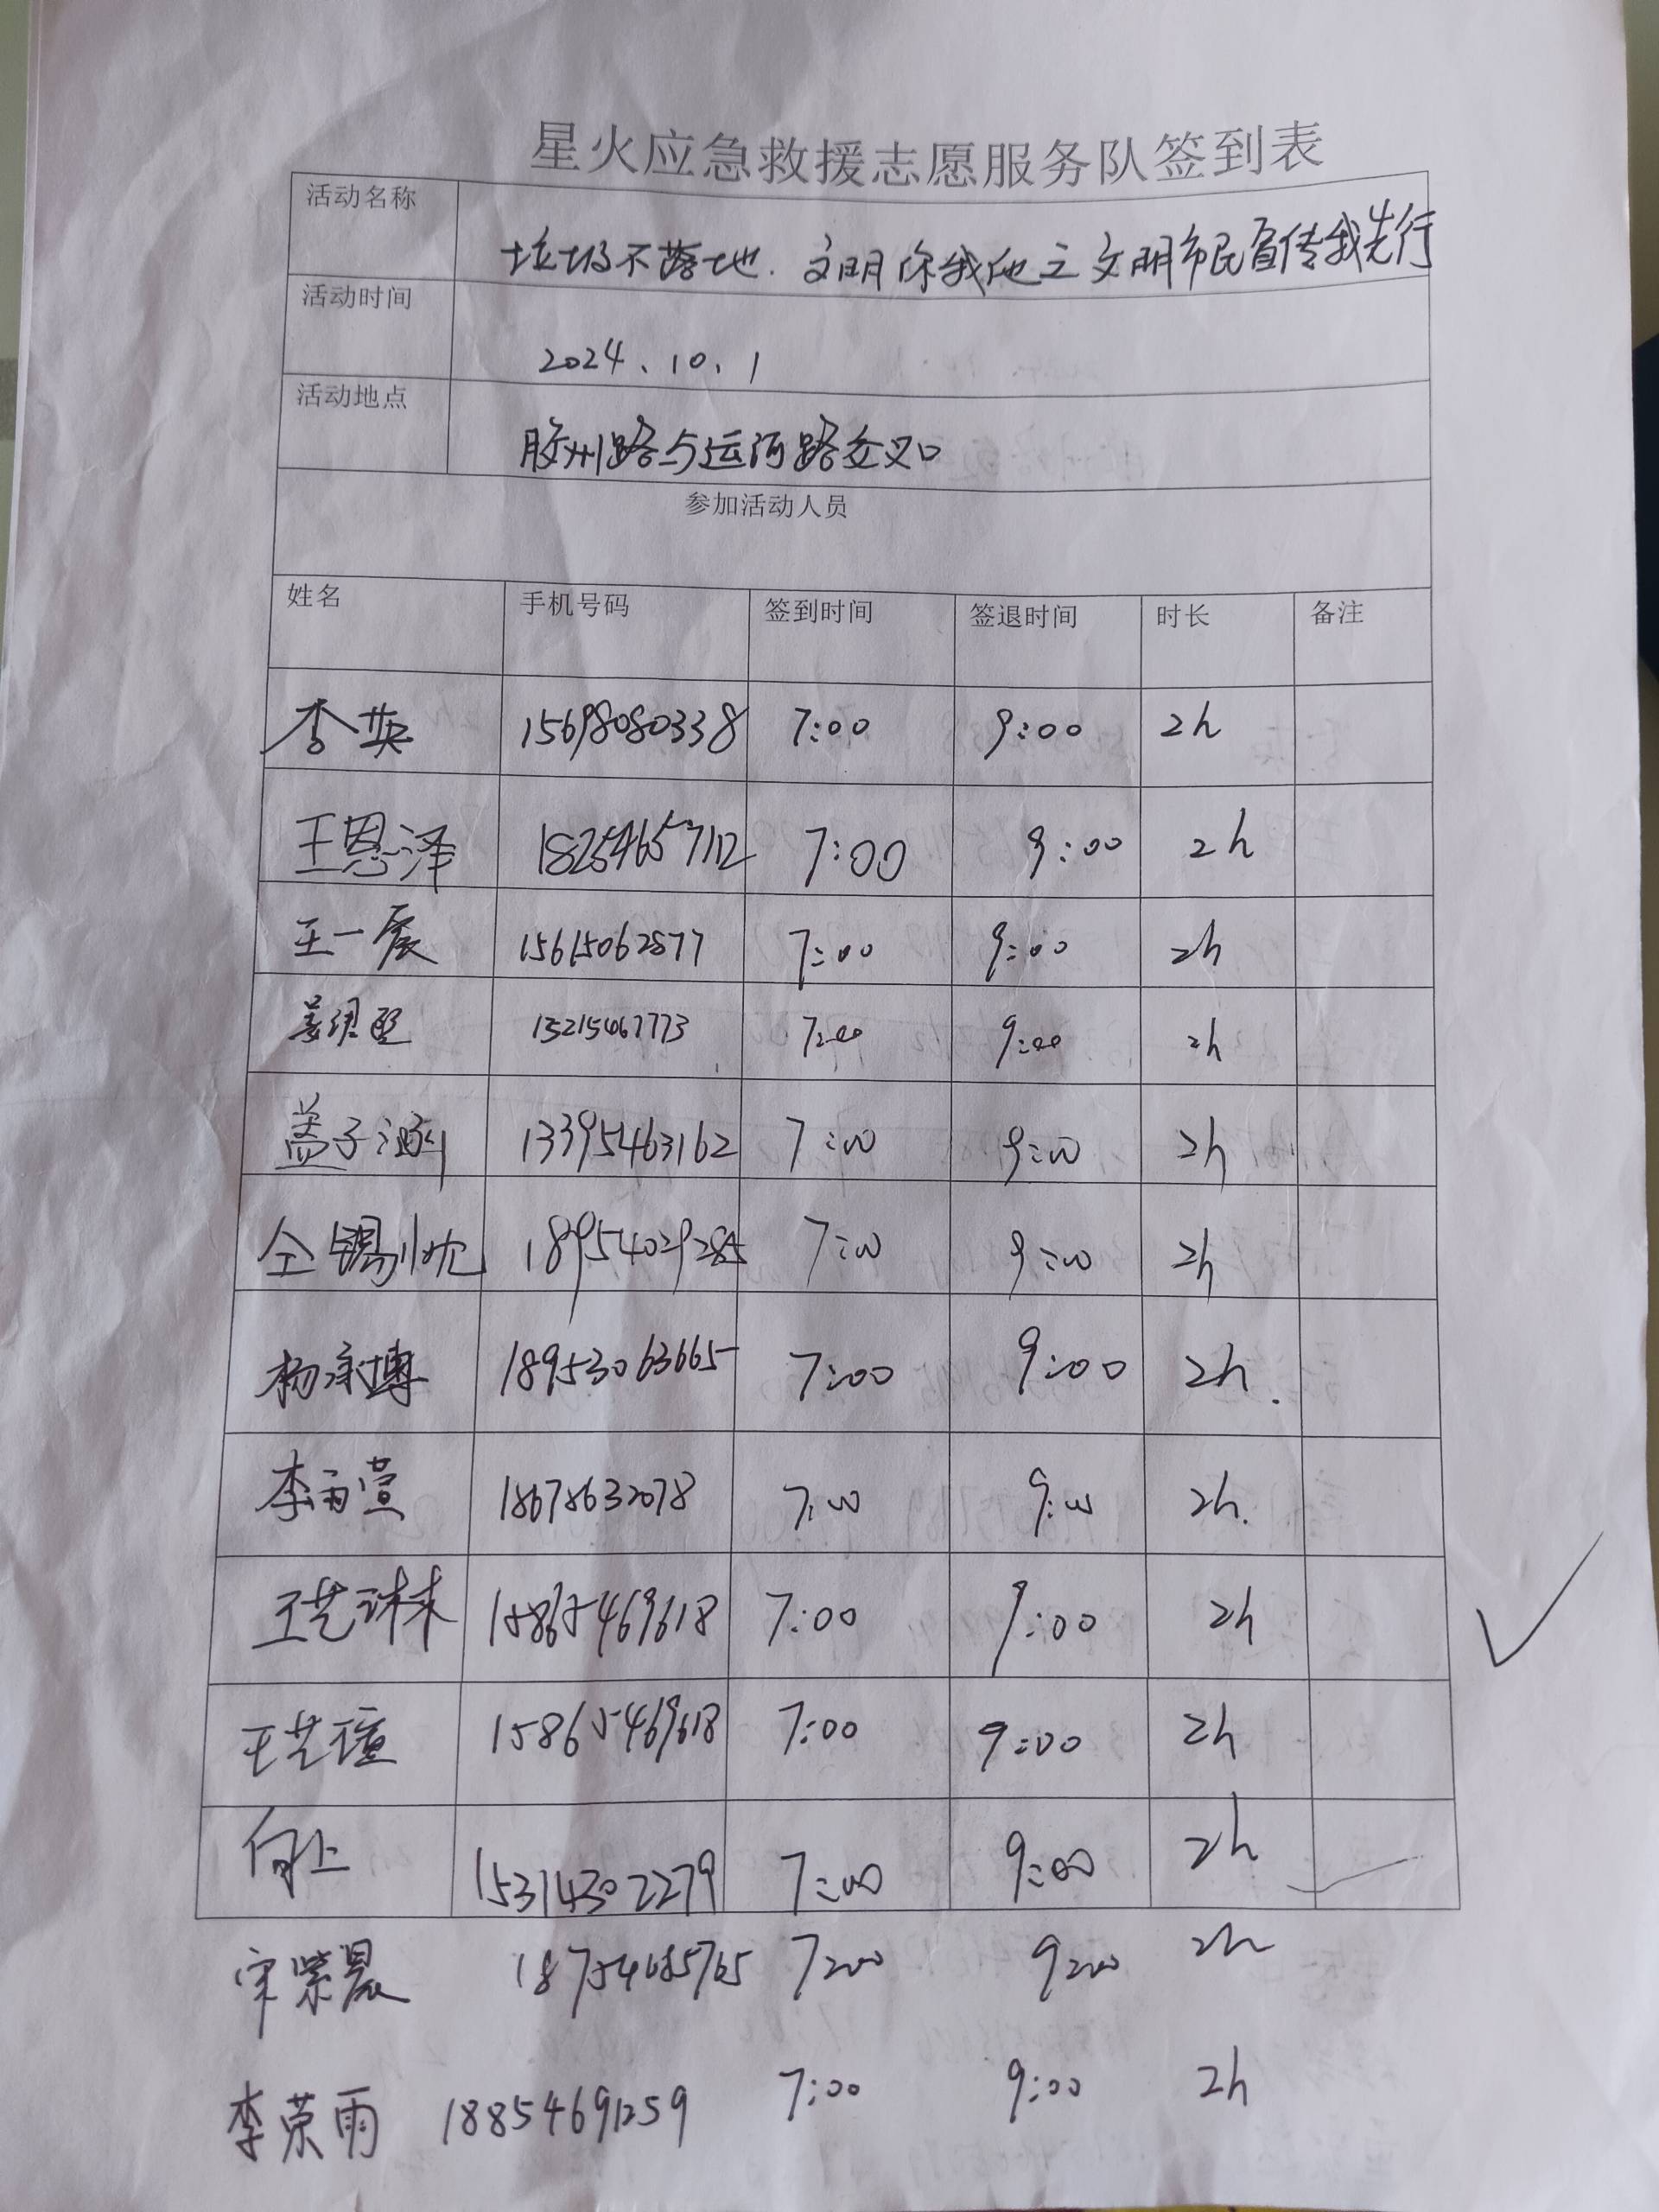 星火应急救援志愿服务队签到表
活动名称 垃圾不落地.文明你我他之文明市民宣传我先行
活动时间 2024、10、1
活动地点 胶州路与运河路交叉口
参加活动人员
姓名 手机号码 签到时间 签退时间 时长 备注
李英 15698080338 7:00 9:00 2h
王恩泽 18254657112 7:00 9:00 2h
王一宸 15615062877 7:00 9:00 2h
姜 15215467773 7:00 9:00 2h
盖子涵 13395463162 7:00 9:00 2h
仝锡忱 18954029285 7:00 9:00 2h
杨承博 18953063665 7:00 9:00 2h
李雨萱 18678632078 7:00 9:00 2h.
王艺琳 15865469618 7:00 9:00 2h
王艺瑾 15865469618 7:00 9:00 2h
向上 15314302279 7:00 9:00 2h
宋紫晨 18754685765 7:00 9:00 2h
李荣雨 18854691259 7:00 9:00 2h